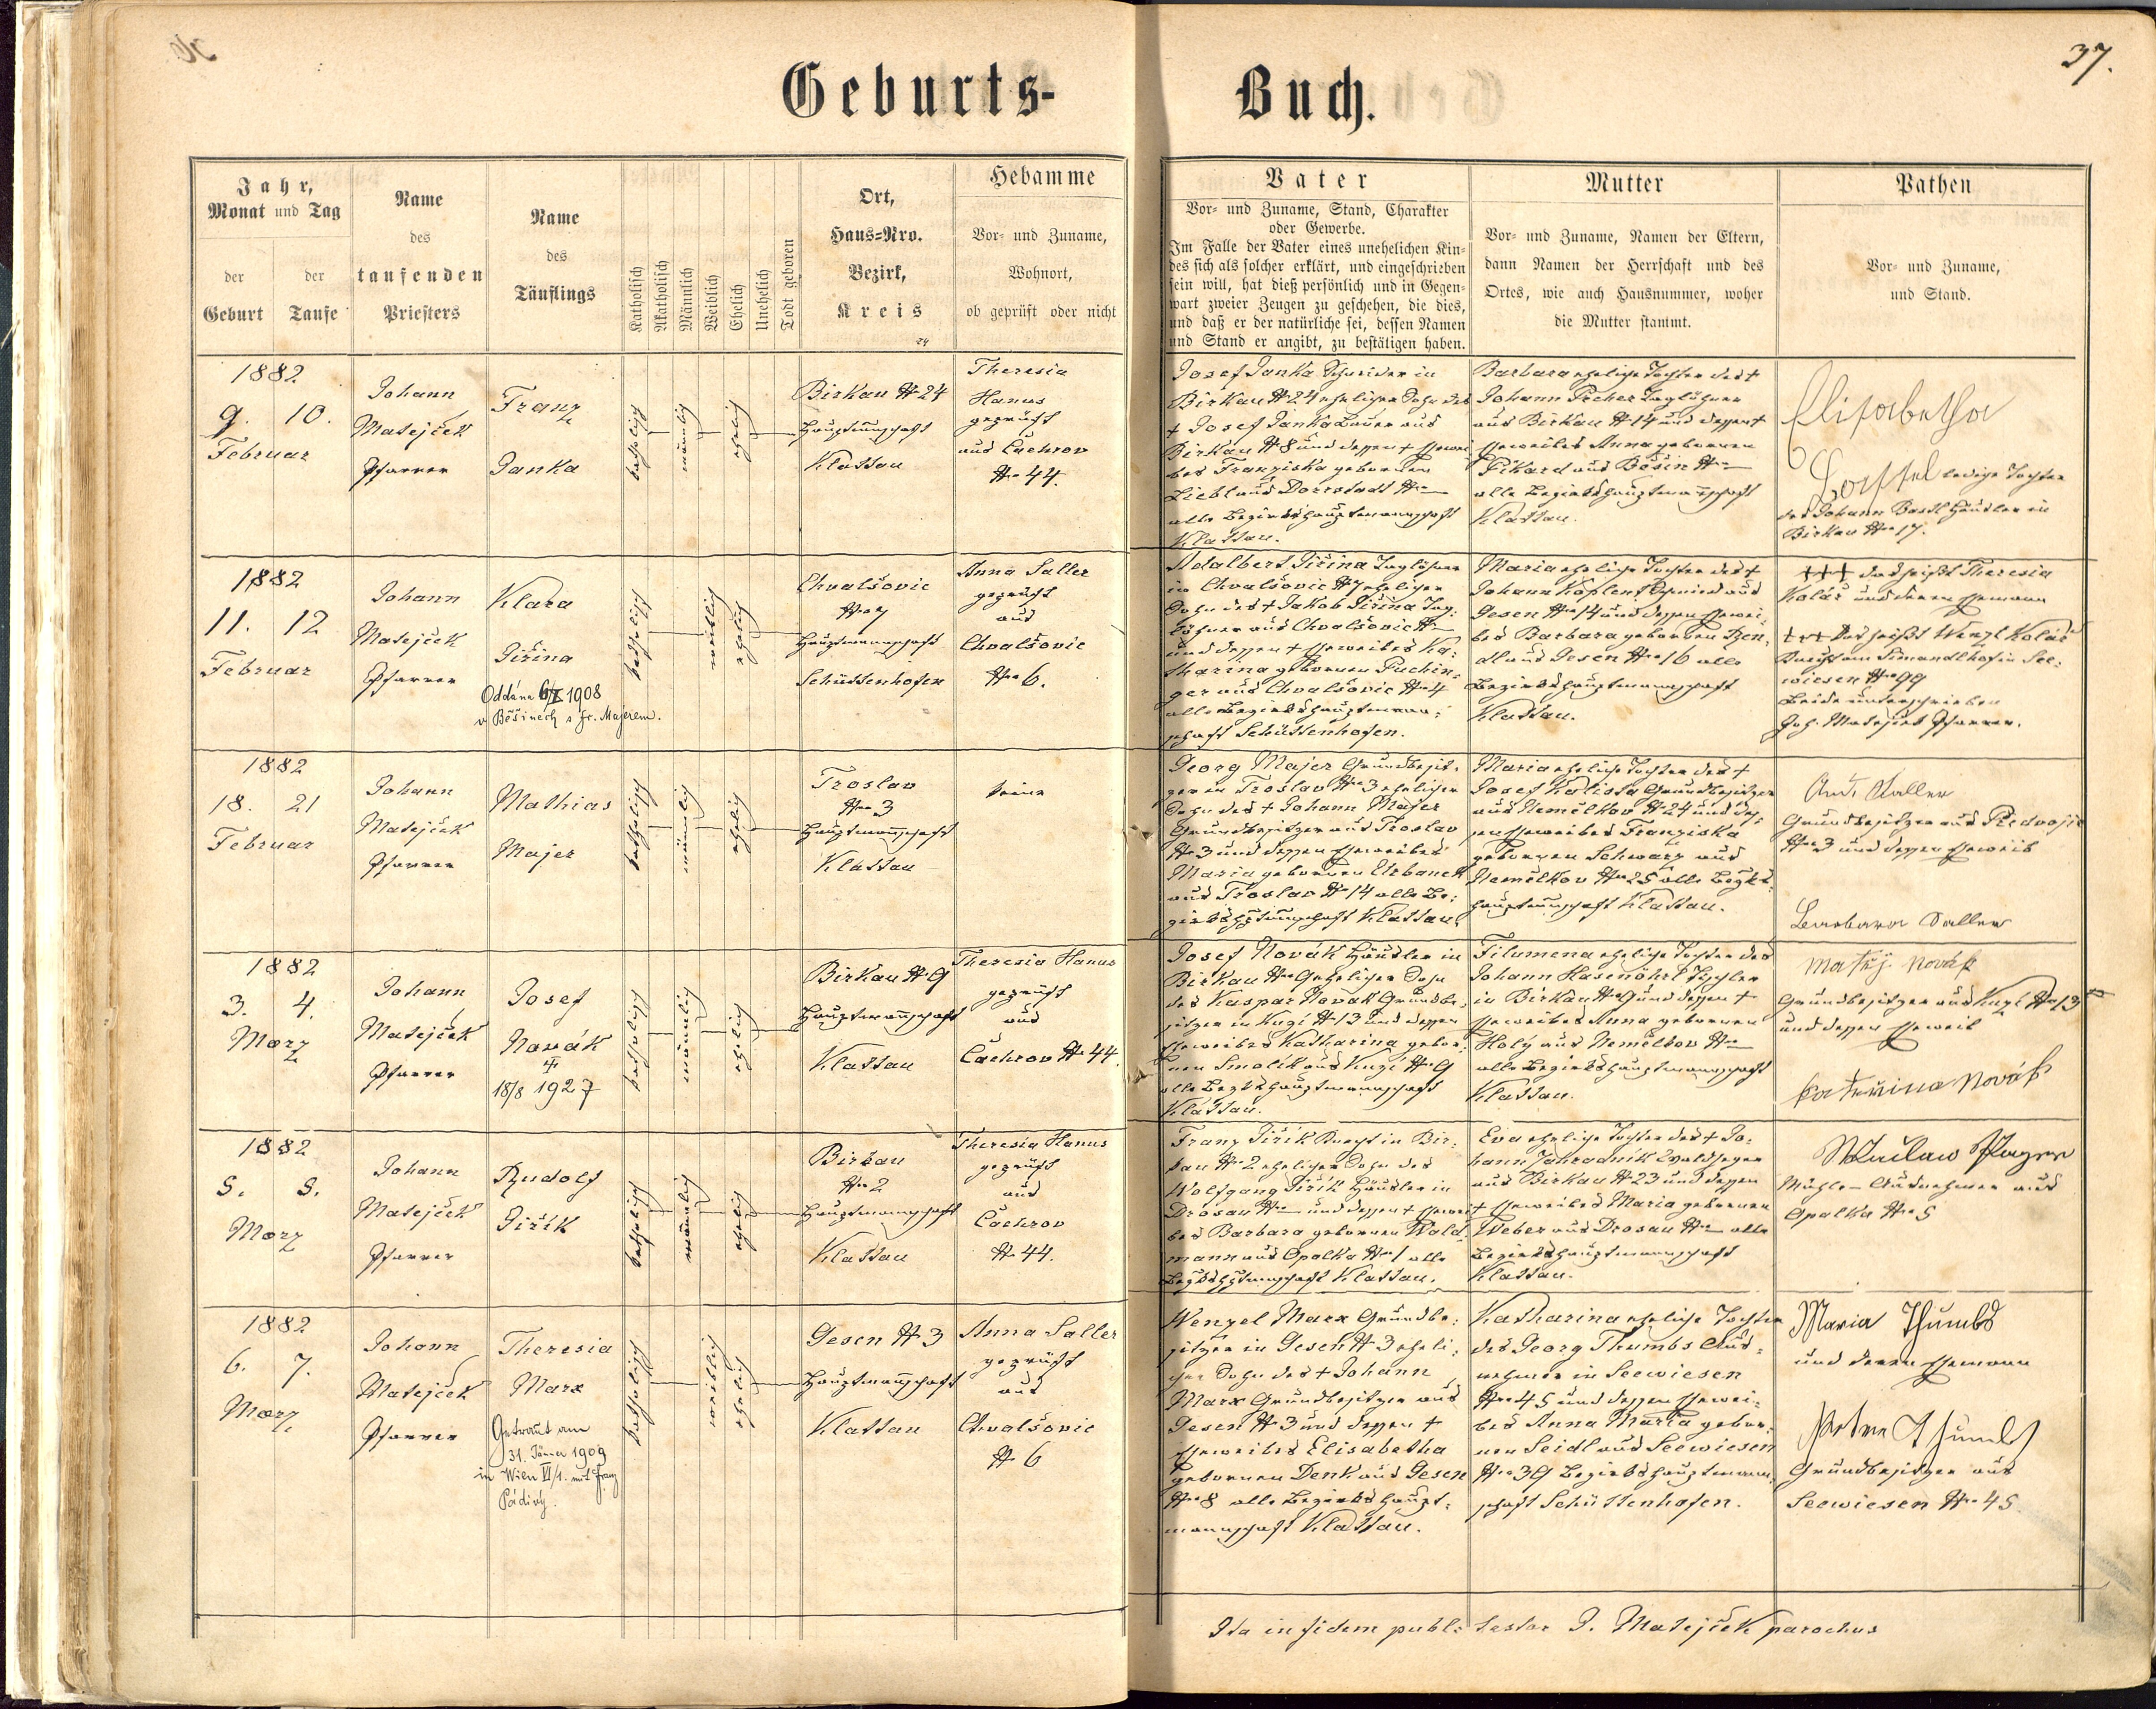 37.
Geburts-
Buch.
Jahr,
Monat und Tag
der
Geburt
der
Taufe
Name
des
taufenden
Priesters
Name
des
Täuflings
Katholisch
Akatholisch
Männlich
Weiblich
Ehelich
Unehelich
Todt geboren
Ort,
Haus-Nro.
Bezirk,
Kreis
Hebamme
Vor- und Zuname,
Wohnort,
ob geprüft oder nicht
Vater
Vor- und Zuname, Stand, Charakter
oder Gewerbe.
Im Falle der Vater eines unehelichen Kin-
des sich als solcher erklärt, und eingeschrieben
sein will, hat dieß persönlich und in Gegen-
wart zweier Zeugen zu geschehen, die dies,
und daß er der natürliche sei, dessen Namen
und Stand er angibt, zu bestätigen haben.
Mutter
Vor- und Zuname, Namen der Eltern,
dann Namen der Herrschaft und des
Ortes, wie auch Hausnummer, woher
die Mutter stammt.
Pathen
Vor- und Zuname,
und Stand.
1882
9. 10.
Februar
Johann
Matejček
Pfarrer
Franz
Janka
katholisch
männlich
ehelich
Birkau № 24
Hauptmannschaft
Klattau
Theresia
Hanus
geprüft
aus Čachrov
№ 44.
Josef Janka Schneider in
Birkau № 24 ehelicher Sohn des
+ Josef Janka Bauer aus
Birkau № 8 und dessen + Ehewei
bes Franziska geborenen
Liebl aus Dorrstadt №
alle Bezirkshauptmannschaft
Klattau.
Barbara eheliche Tochter des +
Johann Pecher Taglöhner
aus Birkau № 14 und dessen +
Eheweibes Anna geborenen
Pikard aus Běšin №
alle Bezirkshauptmannschaft
Klattau.
Elisabetha
ledige Tochter
des Johann Bastl Häusler in
Birkau № 17.
1882
11. 12
Februar
Johann
Matejček
Pfarrer
Klara
Jiřina
Oddána 6/X 1908
v Běšinech s Fr. Majerem.
katholisch
weiblich
ehelich
Chvalšovic
№ 7
Hauptmannschaft
Schüttenhofen
Anna Saller
geprüft
aus
Chvalšovic
№ 6.
Adalbert Jiřina Taglöhner
in Chvalšovic № 7 ehelicher
Sohn des + Jakob Jiřina Tag-
löhner aus Chvalšovic №
und dessen + Eheweibes Ka-
tharina geborenen Puchin-
ger aus Chvalšovic № 4
alle Bezirkshauptmann-
schaft Schüttenhofen.
Maria eheliche Tochter des +
Johann Schmied aus
Gesen № 14 und dessen Ehewei-
bes Barbara geborenen Ben-
dl aus Gesen № 16 alle
Bezirkshauptmannschaft
Klattau.
+++ das heißt Theresia
Kolář und deren Ehemann
+++ das heißt Wenzl Kolář
Knecht am Simandlhof in See-
wiesen № 99
Beide unterschrieben
Joh. Matejček Pfarrer.
1882
18. 21
Februar
Johann
Matejček
Pfarrer
Mathias
Majer
katholisch
männlich
ehelich
Troslav
№ 3
Hauptmannschaft
Klattau
keine
Georg Majer Grundbesit-
zer in Troslav № 3 ehelicher
Sohn des + Johann Majer
Grundbesitzer aus Troslav
№ 3 und dessen Eheweibes
Maria geborenen Urbanek
aus Troslav № 14 alle Be-
zirkshptmannschaft Klattau.
Maria eheliche Tochter des +
Josef Kalista Grundbesitzer
aus Nemělkov № 24 und des-
sen Eheweibes Franziska
geborenen Schwarz aus
Nemělkov № 25 alle Bezks-
hauptmannschaft Klattau.
And. Saller
Grundbesitzer aus Předvojic
№ 3 und dessen Eheweib
Barbara Saller
1882
3. 4.
März
Johann
Matejček
Pfarrer
Josef
Novák
+
18/8 1927
katholisch
männlich
ehelich
Birkau № 9
Hauptmannschaft
Klattau
Theresia Hanus
geprüft
aus
Čachrov № 44
Josef Novák Häusler in
Birkau № 9 ehelicher Sohn
des Kaspar Novák Grundbe-
sitzer in Kuzí № 13 und dessen
Eheweibes Katharina gebor-
nen Smolík aus Kuzí № 9
alle Bezkshauptmannschaft
Klattau.
Filumena eheliche Tochter des
Johann Hasenöhrl Tischler
in Birkau № 9 und dessen +
Eheweibes Anna geborenen
Holý aus Nemělkov №
alle Bezirkshauptmannschaft
Klattau.
Matěj. Novák
Grundbesitzer aus Kuzí № 13
und dessen Eheweib
Kateřina Novák
1882
5. 8.
März
Johann
Matejček
Pfarrer
Rudolf
Jiřík
katholisch
männlich
ehelich
Birkau
№ 2
Hauptmannschaft
Klattau
Theresia Hanus
geprüft
aus
Čachrov
№ 44.
Franz Jiřík Knecht in Bir-
kau № 2 ehelicher Sohn des
Wolfgang Jiřík Häusler in
Drosau № und dessen + Ehewei-
bes Barbara geborenen Wald-
mann aus Opalka № 1 alle
Bezkshptmannschaft Klattau.
Eva eheliche Tochter des + Jo-
hann Zahradník Waldheger
aus Birkau № 23 und dessen
+ Eheweibes Maria geborenen
Weber aus Drosau № alle
Bezirkshauptmannschaft
Klattau.
Václav
Mühle-Ausnehmer aus
Opalka № 5
1882
6. 7.
März
Johann
Matejček
Pfarrer
Theresia
Marx
Getraut am
31. Jänner 1909
in Wien VI/1. mit Franz
Pádivý.
katholisch
weiblich
ehelich
Gesen № 3
Hauptmannschaft
Klattau
Anna Saller
geprüft
aus
Chvalšovic
№ 6
Wenzel Marx Grundbe-
sitzer in Gesen № 3 eheli-
cher Sohn des + Johann
Marx Grundbesitzer aus
Gesen № 3 und dessen +
Eheweibes Elisabetha
geborenen Denk aus Gesen
№ 8 alle Bezirkshaupt-
mannschaft Klattau.
Katharina eheliche Tochter
des Georg Thumbs Aus-
nehmer in Seewiesen
№ 45 und dessen Ehewei-
bes Anna Maria gebor-
nen Seidl aus Seewiesen
№ 39 Bezirkshauptmann-
schaft Schüttenhofen.
Maria Thumbs
und deren Ehemann
Peter Thumbs
Grundbesitzer aus
Seewiesen № 45
Ita in fidem publ. testor J. Matejček parochus